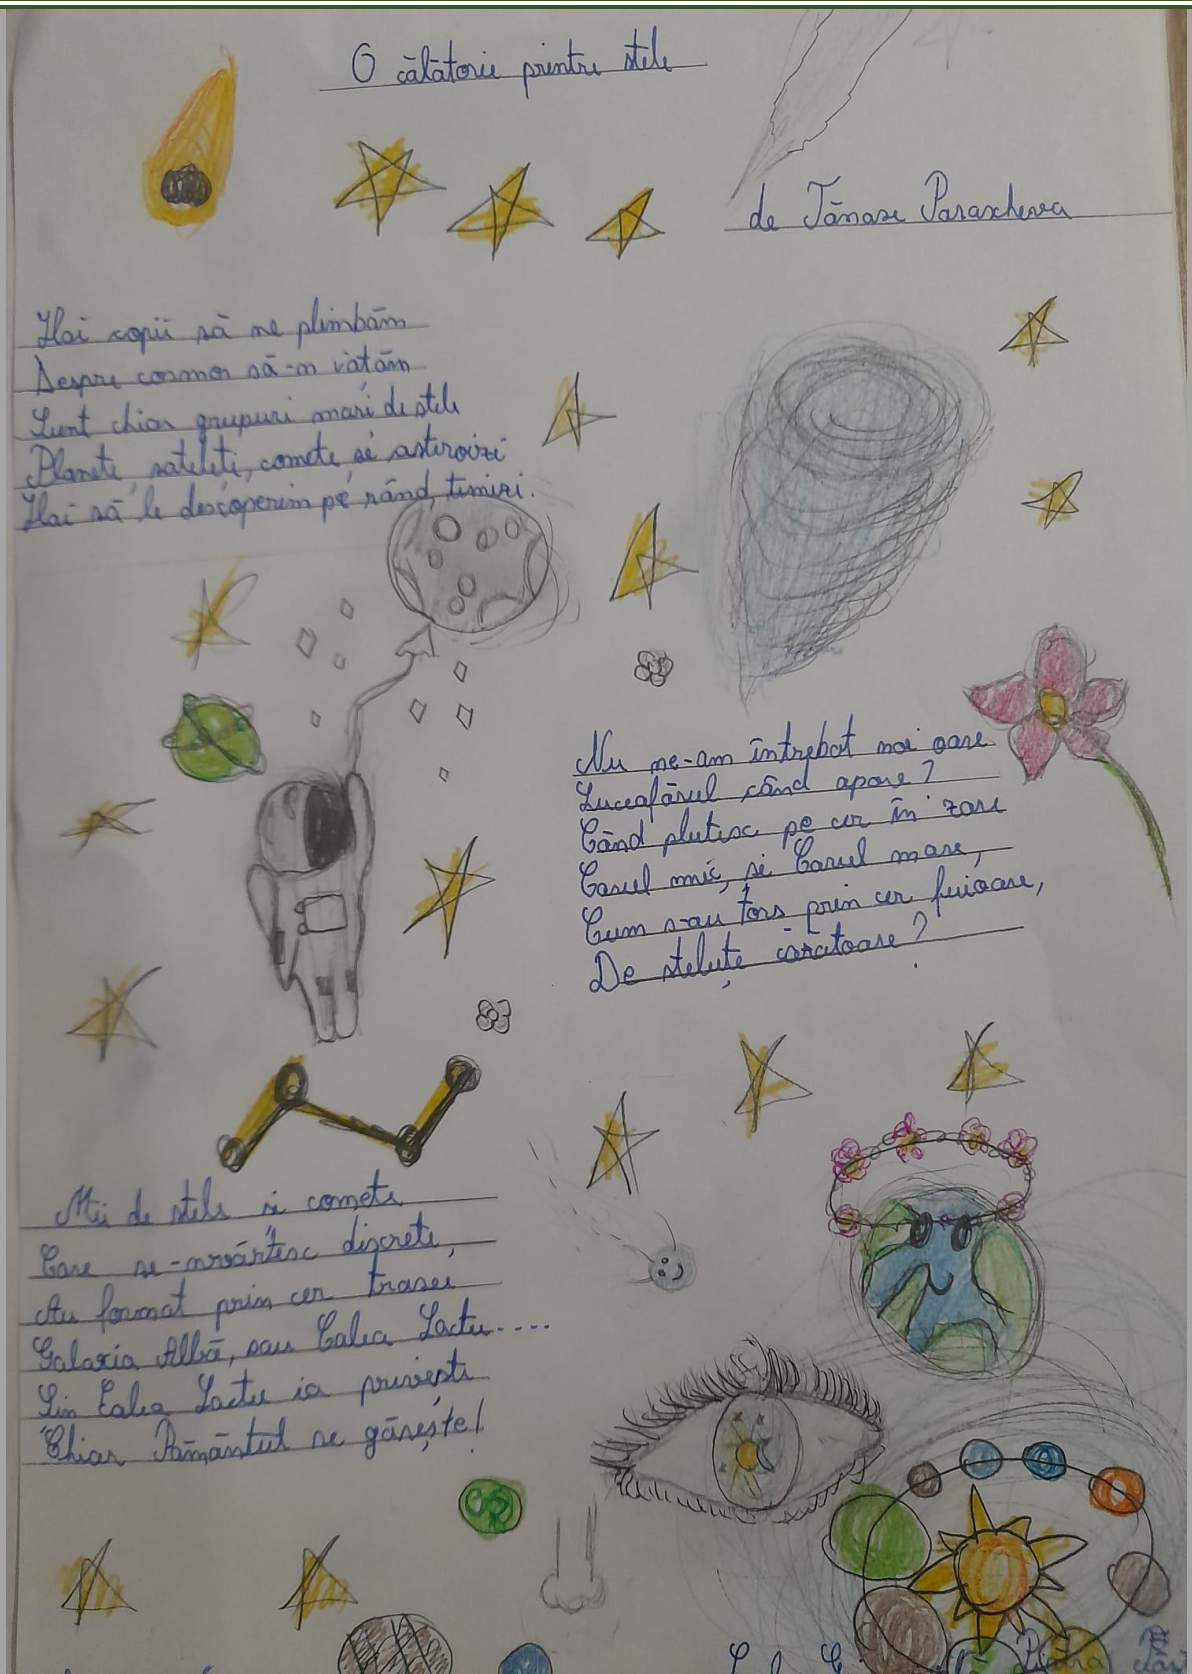 O călătorie printre stele
de Tănase Parascheva
Hai copii să ne plimbăm
Despre cosmos să-nvățăm
Sunt chiar grupuri mari de stele
Planete, sateliți, comete și asteroizi
Hai să le descoperim pe rând, timizi.
Nu ne-am întrebat noi oare
Luceafărul când apare?
Când plutesc pe cer în zare
Carul mic, și Carul mare,
Cum s-au tors prin cer fuioare,
De steluțe căzătoare?
Mii de stele și comete
Care se-nvârtesc discrete,
Au format prin cer trasee
Galaxia Albă, sau Calea Lactee....
Din Calea Lactee ia privește
Chiar Pământul se găsește!